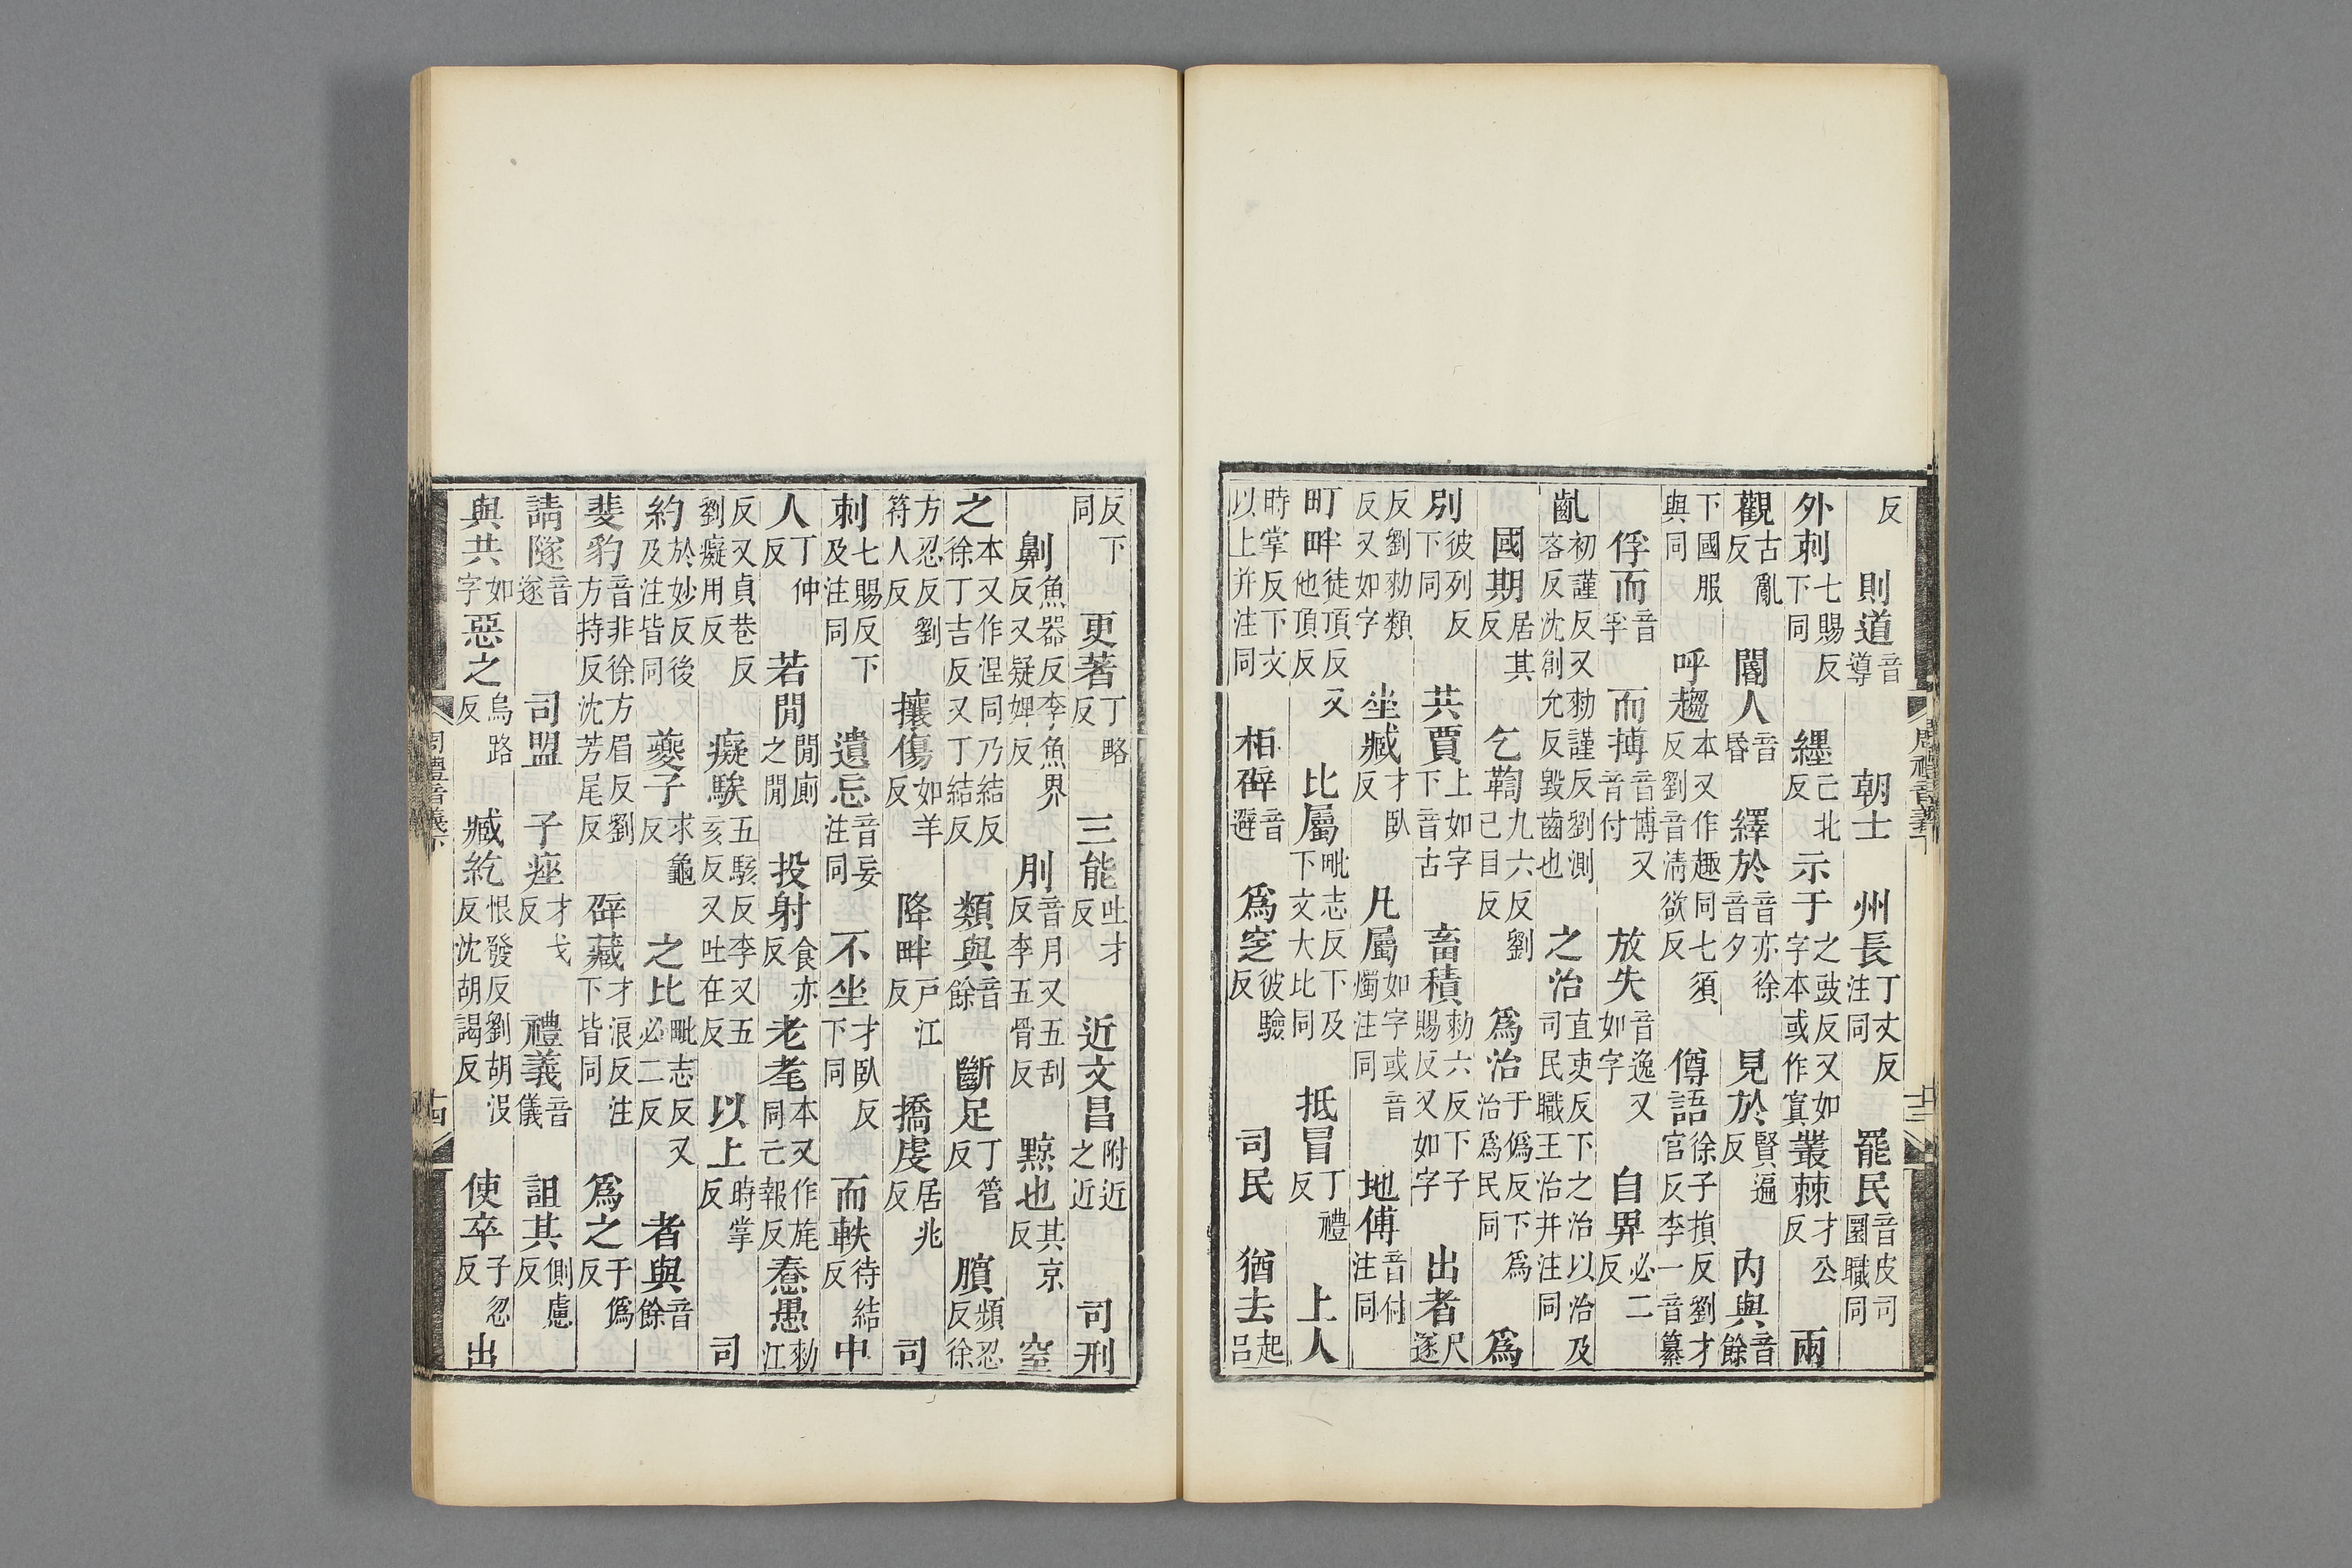 周禮音義下 十三
反 則道音導 朝士 州長丁丈反注同 罷民音皮司圜職同
外刺七賜反下同 纆己北反 示于之豉反又如字本或作寘 叢棘才公反 兩
觀古亂反 閽人音昏 繹於音亦徐音夕 見於賢遍反 內與音餘
下國服與同 呼趨本又作趣同七須反劉音清欲反 僔語徐子損反劉才官反李一音纂
俘而音孚 而搏音博又音付 放失音逸又如字 自畀必二反
齓初謹反又勑謹反劉測吝反沈創允反毀齒也 之治直吏反下之治以治及司民職王治并注同
國期居其反 乞鞫九六反劉己目反 爲治于僞反下爲治爲民同 爲
別彼列反下同 共賈上如字下音古 畜積勑六反下子賜反又如字 出者尺遂
反劉勑類反又如字 坐臧才臥反 凡屬如字或音燭注同 地傅音付注同
町畔徒頂反又他頂反 比屬毗志反下及下文大比同 抵冒丁禮反 上人
時掌反下文以上并注同 柏礔音避 爲窆彼驗反 司民 猶去起呂
反下同 更著丁略反 三能吐才反 近文昌附近之近 司刑
劓魚器反李魚界反又疑婢反 刖音月又五刮反李五骨反 黥也其京反 窒
之本又作涅同乃結反徐丁吉反又丁結反 類與音餘 斷足丁管反 臏頻忍反徐
方忍反劉符人反 攘傷如羊反 降畔戶江反 撟虔居兆反 司
刺七賜反下及注同 遺忘音妄注同 不坐才臥反下同 而軼待結反 中
人丁仲反 若閒閒廁之閒 投射食亦反 老耄本又作旄同亡報反 惷愚勑江
反又貞巷反劉癡用反 癡騃五駭反李又五亥反又吐在反 以上時掌反 司
約於妙反後及注皆同 夔子求龜反 之比毗志反又必二反 者與音餘
斐豹音非徐方眉反劉方持反沈芳尾反 辟藏才浪反注下皆同 爲之于僞反
請隧音遂 司盟 子痤才戈反 禮義音儀 詛其側慮反
與共如字 惡之烏路反 臧紇恨發反劉胡沒反沈胡謁反 使卒子忍反 出
周禮音義下 十四